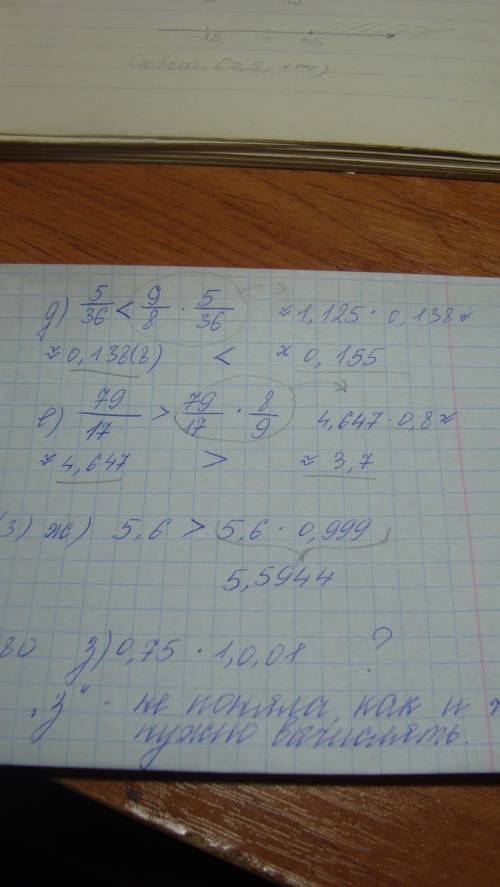 -1,5 0 0,5
Ответ: [0,5; +∞)
д) 5/36 < 9/8 · 5/36 ≈ 1,125 · 0,138 ≈
≈ 0,138(8) < ≈ 0,155
е) 79/17 > 79/17 · 8/9 4,647 · 0,8 ≈
≈ 4,647 > ≈ 3,7
(3) ж) 5,6 > 5,6 · 0,999
5,5944
80 з) 0,75 · 1,0,01 ?
„З" - не поняла, как и
нужно вычислять.